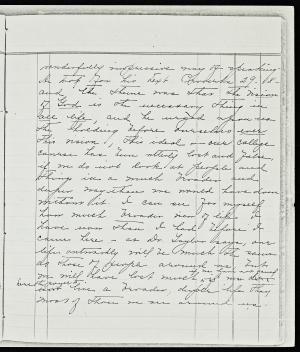 wonderfully impressive way of speaking.
He took for his text Proverbs 29:18-
and, the theme was that the Vision
of God is the necessary thing in
all life, and he urged upon us
the holding before ourselves ever
this vision, this ideal - our college
course has been utterly lost and false,
if we do not look at people and
things in a much broader and
deeper way than we would have done
without it. I can see for myself
how much broader view of life I
have now than I had before I
came here - as Dr Taylor says, our
life outwardly will be much the same
as those of people around us but
we will have lost much if we do
not live a broader, deeper life than
most of those we are around us.